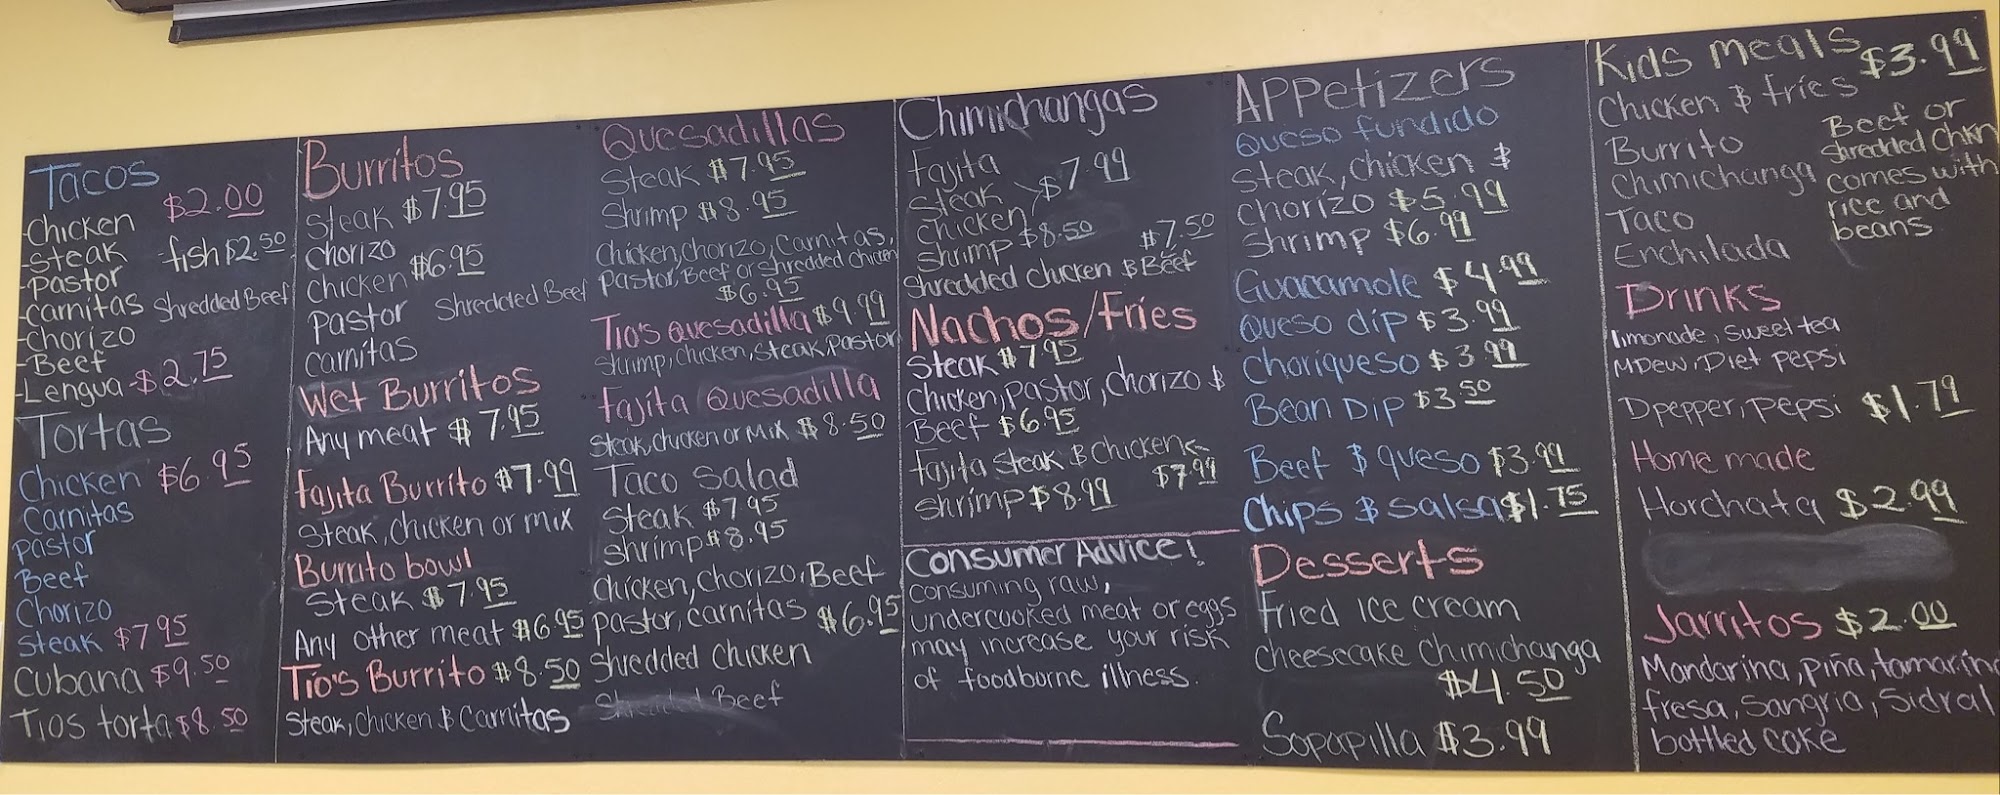 Tacos
$2.00
-Chicken
-Steak
-fish $2.50
-Pastor
-Carnitas Shredded Beef
-Chorizo
-Beef
-Lengua -$2.75
Tortas
Chicken $6.95
Carnitas
pastor
Beef
Chorizo
Steak $7.95
Cubana $9.50
Tios torta $8.50
Burritos
Steak $7.95
Chorizo
Chicken $6.95
Pastor Shredded Beef
Carnitas
Wet Burritos
Any meat $7.95
Fajita Burrito $7.99
Steak, chicken or mix
Burrito bowl
Steak $7.95
Any other meat $6.95
Tio's Burrito $8.50
Steak, Chicken & Carnitas
Quesadillas
Steak $7.95
Shrimp $8.95
Chicken, Chorizo, Carnitas,
Pastor, Beef or Shredded chicken
$6.95
Tio's Quesadilla $9.99
Shrimp, chicken, steak, Pastor
Fajita Quesadilla
Steak, chicken or Mix $8.50
Taco Salad
Steak $7.95
Shrimp $8.95
Chicken, Chorizo, Beef
pastor, carnitas $6.95
Shredded chicken
Shredded Beef
Chimichangas
Fajita
Steak $7.99
Chicken
Shrimp $8.50 $7.50
Shredded chicken & Beef
Nachos/Fries
Steak $7.95
Chicken, Pastor, Chorizo &
Beef $6.95
Fajita Steak & Chicken
$7.99
Shrimp $8.99
Consumer Advice!
consuming raw,
undercooked meat or eggs
may increase your risk
of foodborne illness.
Appetizers
Queso fundido
Steak, chicken &
Chorizo $5.99
Shrimp $6.99
Guacamole $4.99
Queso dip $3.99
Choriqueso $3.99
Bean Dip $3.50
Beef & queso $3.99
Chips & Salsa $1.75
Desserts
Fried Ice cream
Cheesecake Chimichanga
$4.50
Sopapilla $3.99
Kids meals $3.99
Chicken & fries
Burrito
Chimichanga
Taco
Enchilada
Beef or
Shredded Chkn
comes with
rice and
beans
Drinks
limonade, sweet tea
MDew, Diet Pepsi
Dpepper, Pepsi $1.79
Home made
Horchata $2.99
Jarritos $2.00
Mandarina, piña, tamarind
fresa, Sangria, Sidral
bottled coke